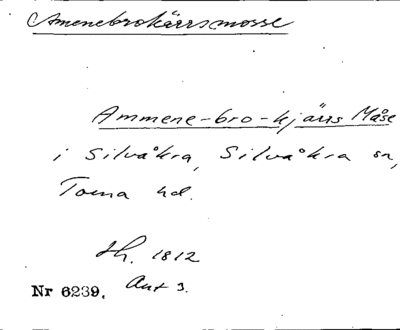 Amenebrokärrsmosse
Ammene-bro-kjärrs Måse
i Silvåkra, Silvåkra sn,
Torna hd.
Sh. 1812
Akt 3.
Nr 6239.